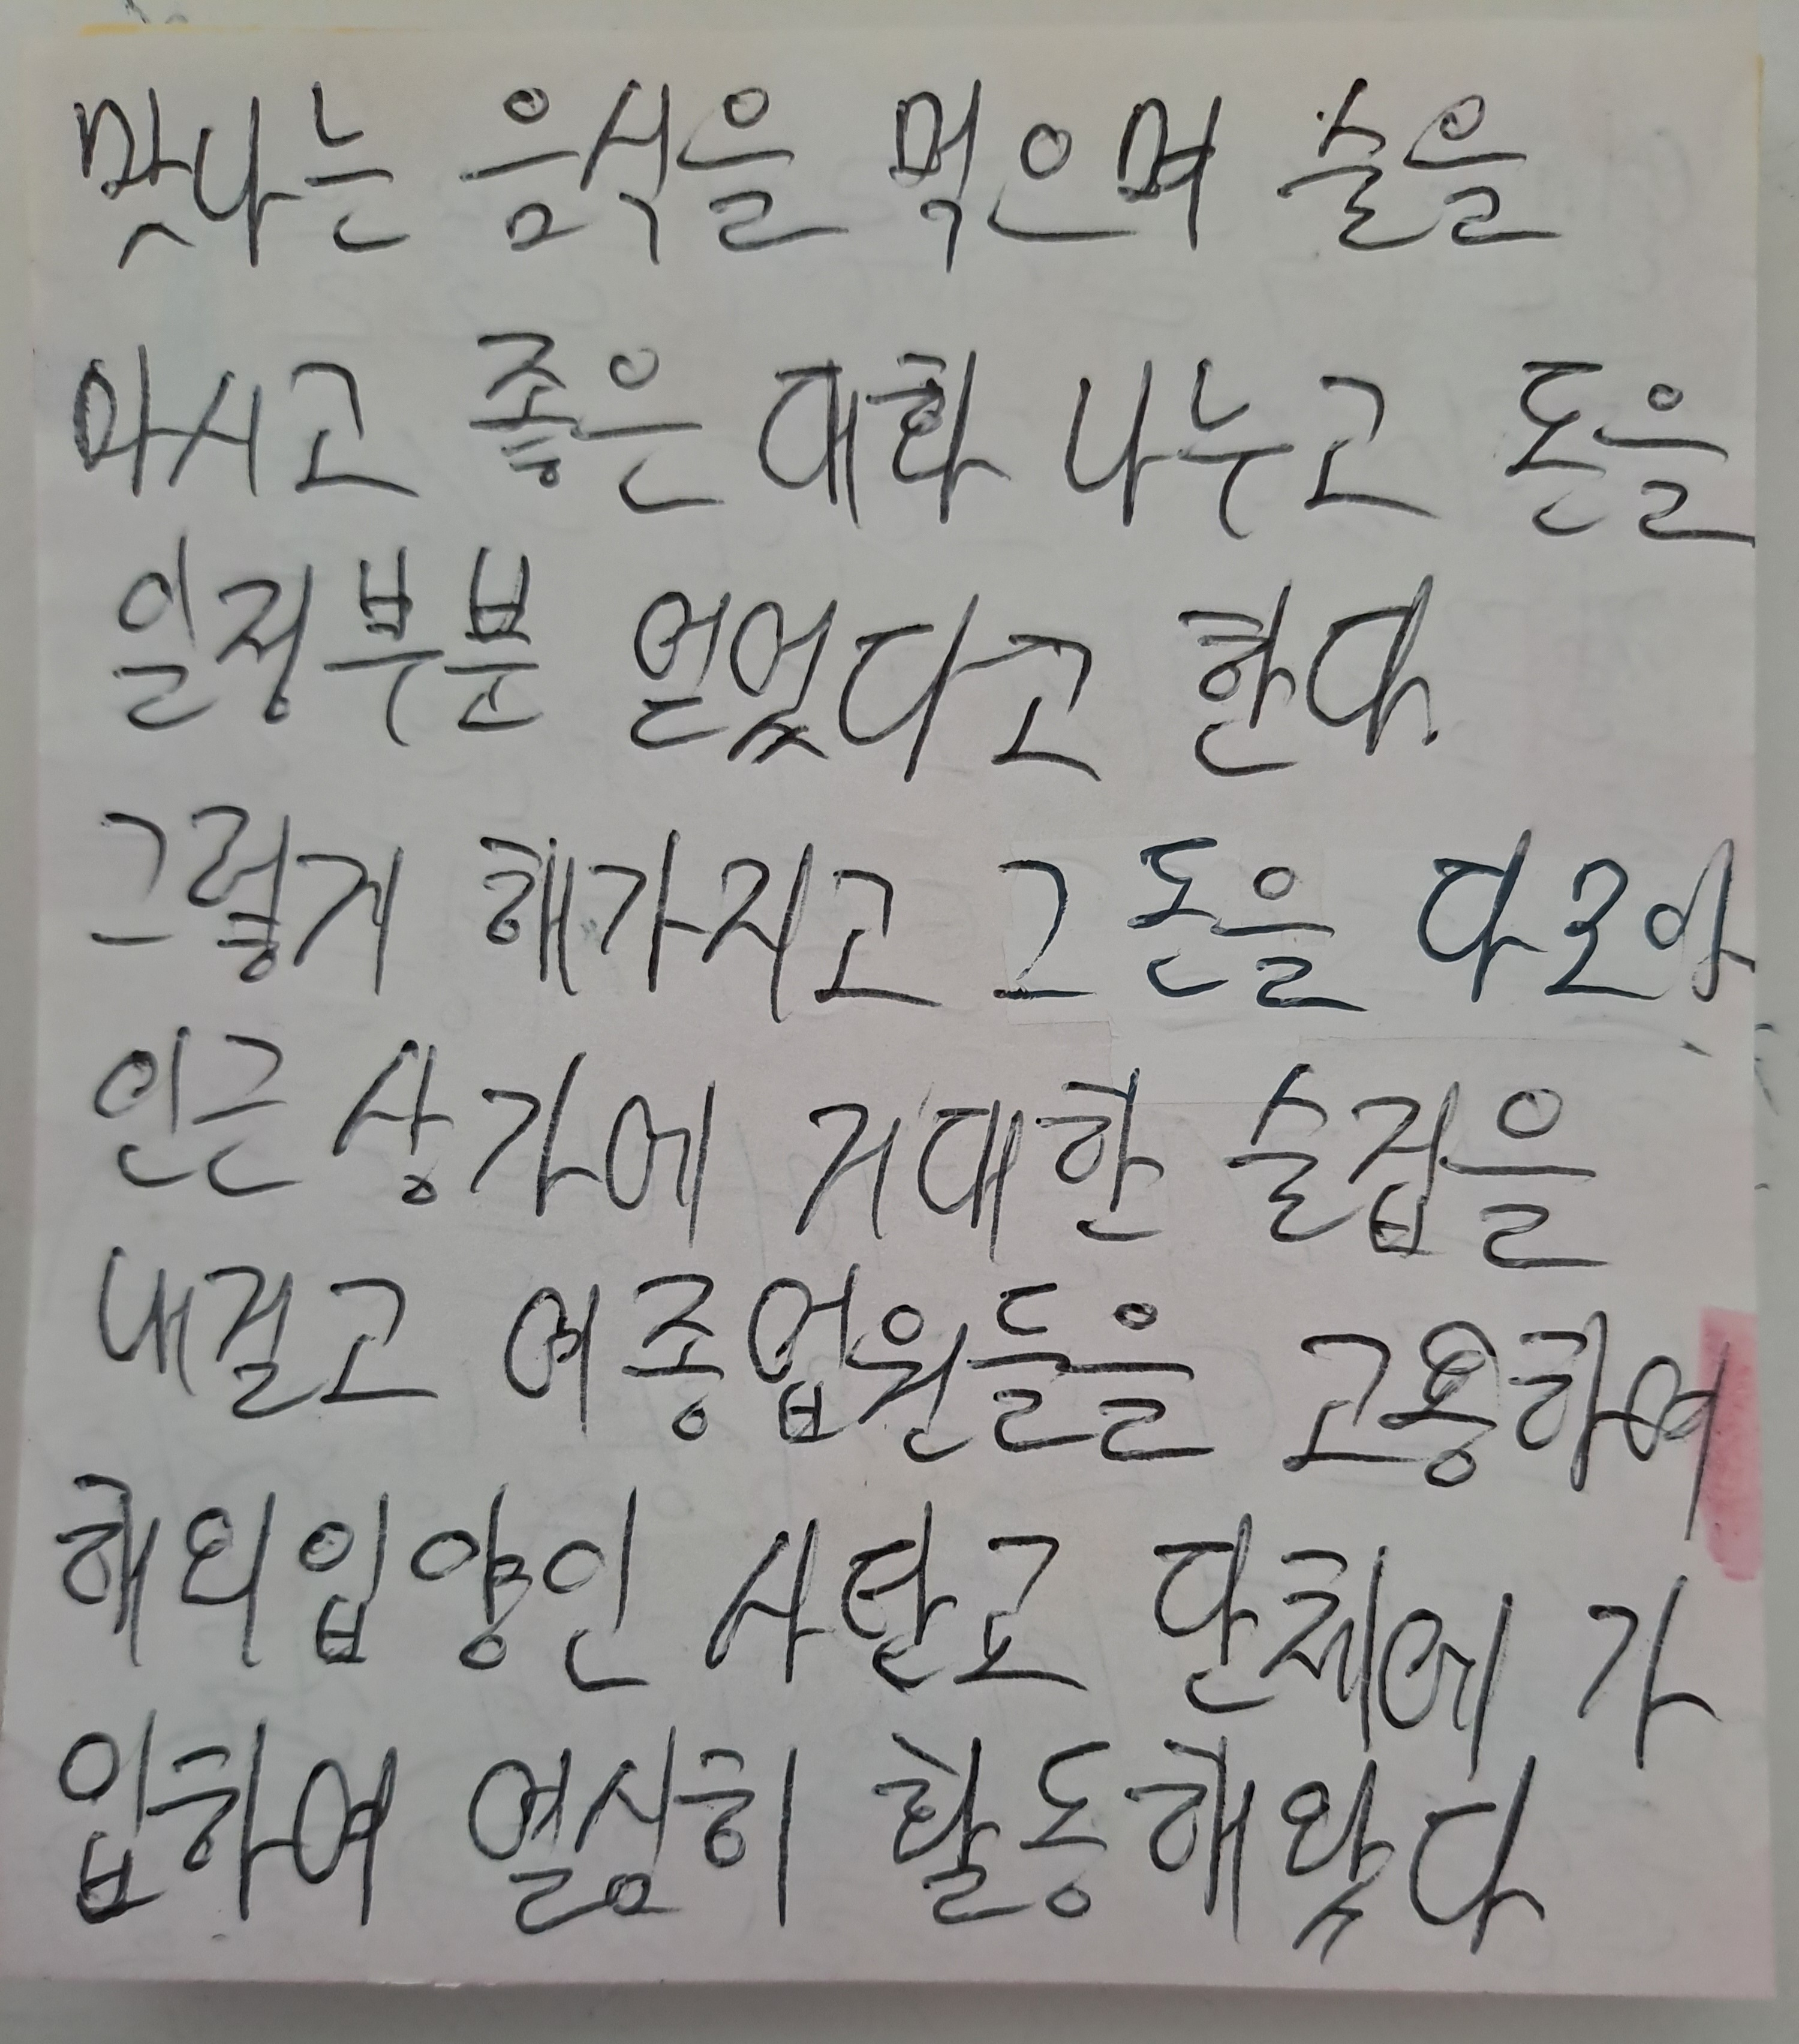 맛나는 음식을 먹으며 술을
마시고 좋은 대화 나누고 돈을
일정부분 얻었다고 한다.
그렇게 해가지고 그 돈을 다모아
인근 상가에 거대한 술집을
내걸고 여종업원들을 고용하여
해외입양인 사탄교 단체에 가
입하여 열심히 활동해왔다